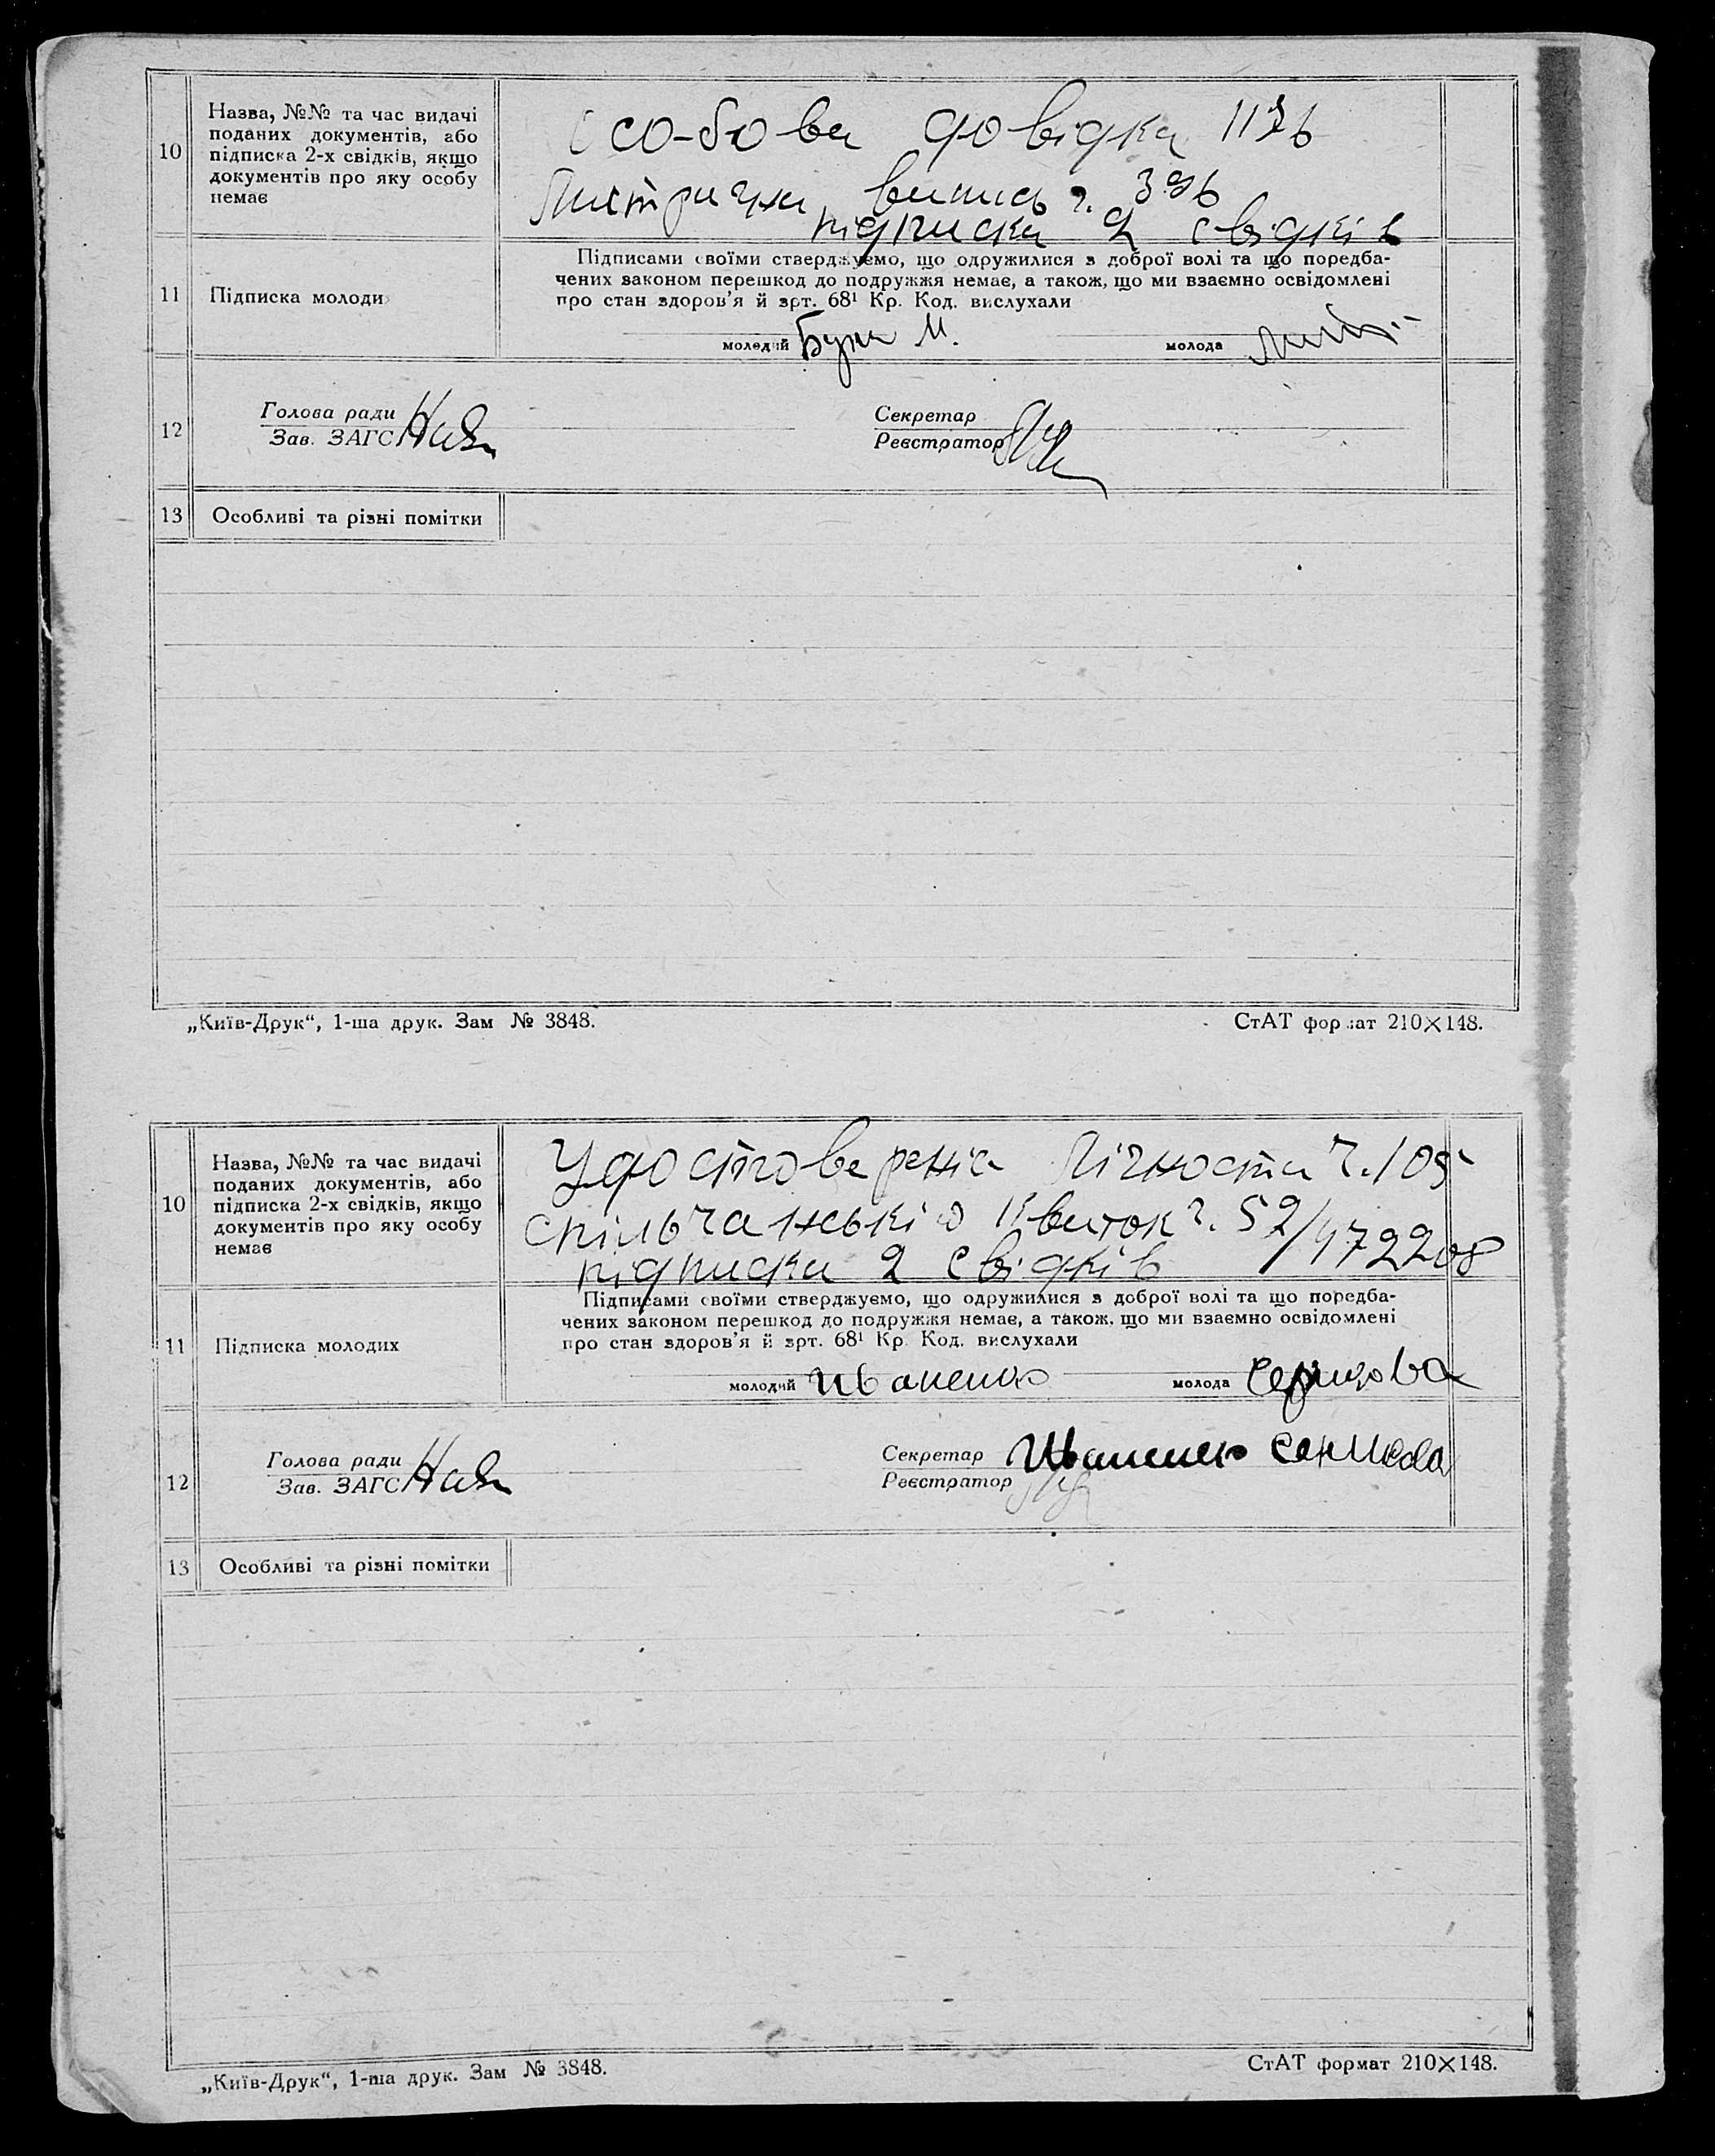 10
Назва, №№ та час видачі
поданих документів, або
підписка 2-х свідків, якщо
документів про яку особу
немає
Особова довідка
випись ч.
підписка 2 свідків
11
Підписка молодих
Підписами своїми стверджуємо, що одружилися з доброї волі та що поредба-
чених законом перешкод до подружжя немає, а також, що ми взаємно освідомлені
про стан здоров'я й арт. 68¹ Кр. Код. вислухали
молодий М.
молода
12
Голова ради
Зав. ЗАГС
Секретар
Реєстратор
13
Особливі та різні помітки
„Київ-Друк“, 1-ша друк. Зам № 3848.
СтАТ формат 210×148.
10
Назва, №№ та час видачі
поданих документів, або
підписка 2-х свідків, якщо
документів про яку особу
немає
Удостовереніа Лічности ч. 105
квиток ч. 52/472208
підписка 2 свідків
11
Підписка молодих
Підписами своїми стверджуємо, що одружилися з доброї волі та що поредба-
чених законом перешкод до подружжя немає, а також, що ми взаємно освідомлені
про стан здоров'я й арт. 68¹ Кр. Код. вислухали
молодий Иваненко
молода
12
Голова ради
Зав. ЗАГС
Секретар Иваненко
Реєстратор
13
Особливі та різні помітки
„Київ-Друк“, 1-ша друк. Зам № 3848.
СтАТ формат 210×148.